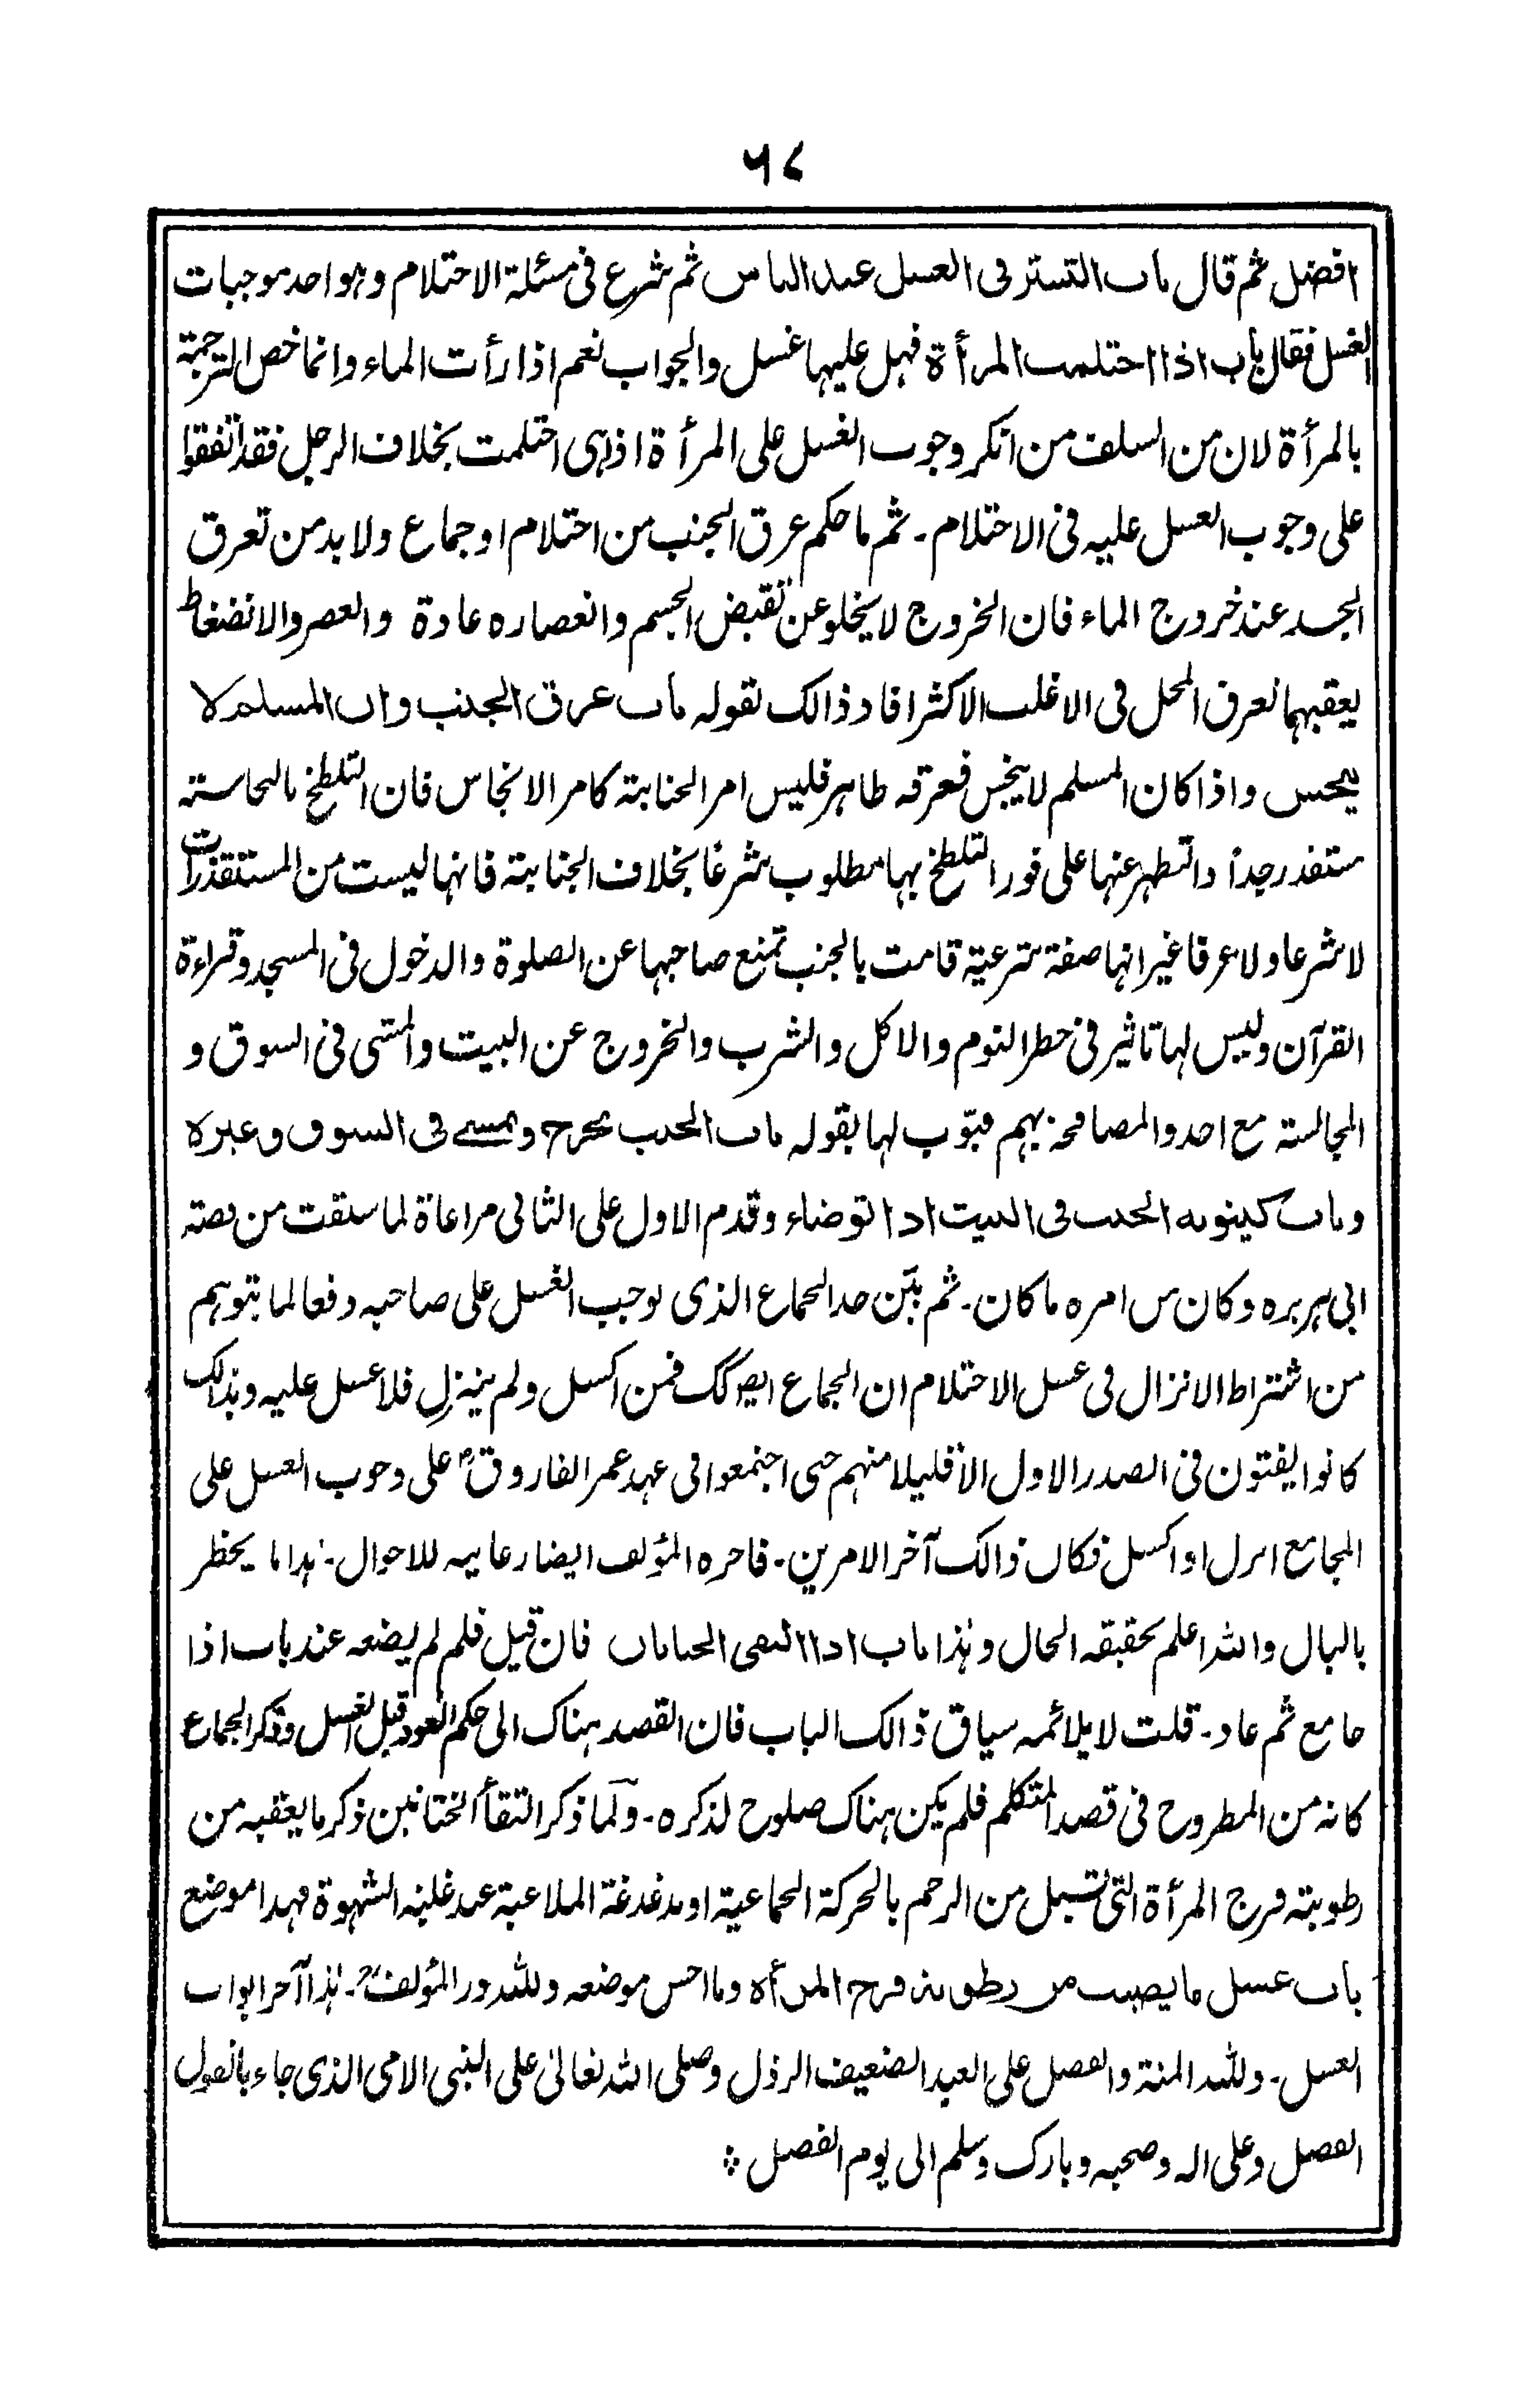 ٦٧
افضل ثم قال باب التستر فی الغسل عند الناس ثم شرع فی مسئلة الاحتلام وهو احد موجبات
الغسل فقال باب اذا احتلمت المرأة فهل علیها غسل والجواب نعم اذا رأت الماء وانما خص الترجمة
بالمرأة لان من السلف من انکر وجوب الغسل علی المرأة اذا هی احتلمت بخلاف الرجل فقد اتفقوا
علی وجوب الغسل علیه فی الاحتلام - ثم ما حکم عرق الجنب من احتلام او جماع ولا بد من تعرق
الجسد عند خروج الماء فان الخروج لا یخلو عن تقبض الجسم وانعصاره عادة والعصر والانضغاط
یعقبهما تعرق المحل فی الاغلب الاکثر افاد ذالک بقوله باب عرق الجنب وان المسلم لا
ینجس واذا کان المسلم لا ینجس فعرقه طاهر فلیس امر الجنابة کامر الانجاس فان التلطخ بالنجاسة
مستقذر جداً والتطهر عنها علی فور التلطخ بها مطلوب شرعًا بخلاف الجنابة فانها لیست من المستقذرات
لا شرعا ولا عرفا غیر انها صفة شرعیة قامت بالجنب تمنع صاحبها عن الصلوة والدخول فی المسجد وقراءة
القرآن ولیس لها تاثیر فی حظر النوم والاکل والشرب والخروج عن البیت والمشی فی السوق و
المجالسة مع احد والمصافحة بهم فبوّب لها بقوله باب الجنب یخرج ویمشی فی السوق وغیره
وباب کینونة الجنب فی البیت اذا توضاء وقدم الاول علی الثانی مراعاة لما سبقت من قصة
ابی هریره وکان من امره ما کان - ثم بیّن حد الجماع الذی یوجب الغسل علی صاحبه دفعا لما یتوهم
من اشتراط الانزال فی غسل الاحتلام ان الجماع ایضا کک فمن اکسل ولم ینزل فلا غسل علیه وبذالک
کانوا یفتون فی الصدر الاول الا قلیلا منهم حتی اجتمعوا فی عهد عمر الفاروق رض علی وجوب الغسل علی
المجامع انزل او اکسل فکان ذالک آخر الامرین - فاخره المؤلف ایضا رعایة للاحوال - هذا ما یخطر
بالبال والله اعلم بحقیقة الحال وهذا باب اذا التقی الختانان فان قیل فلم لم یضعه عند باب اذا
جامع ثم عاد - قلت لا یلائمه سیاق ذالک الباب فان القصد هناک الی حکم العود قبل الغسل وذکر الجماع
کانه من المطروح فی قصد المتکلم فلم یکن هناک صلوح لذکره - ولما ذکر التقأ الختانین ذکر ما یعقبه من
رطوبة فرج المرأة التی تسیل من الرحم بالحرکة الجماعیة او بدغدغة الملاعبة عند غلبة الشهوة فهذا موضع
باب غسل ما یصیب من رطوبة فرج المرأه وما احسن موضعه ولله در المؤلف رح - هذا آخر ابواب
الغسل - ولله المنة والفضل علی العبد الضعیف الرذل وصلی الله تعالی علی النبی الامی الذی جاء بالقول
الفصل وعلی اله وصحبه وبارک وسلم الی یوم الفصل ؞